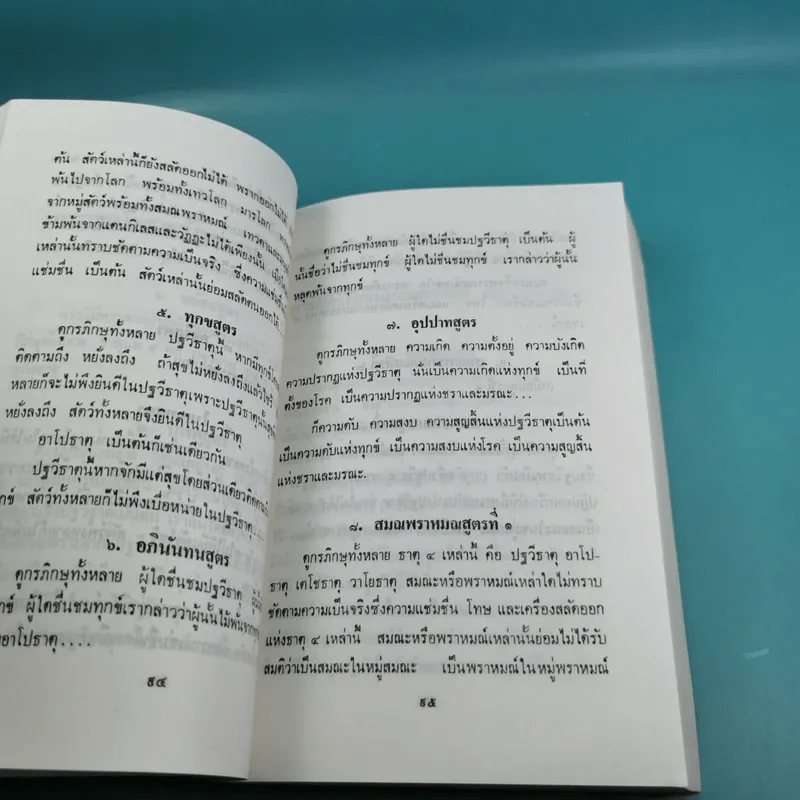 ตน สัตว์เหล่านี้ก็ยังสลัดออกไม่ได้ พรากออกไม่ได้
พ้นไปจากโลก พร้อมทั้งเทวโลก มารโลก
จากหมู่สัตว์พร้อมทั้งสมณพราหมณ์
ข้ามพ้นจากแดนกิเลสและวัฏฏะไม่ได้เพียงนั้น
เหล่านั้นทราบชัดตามความเป็นจริง ซึ่งความแช่มชื่น
แช่มชื่น เป็นต้น สัตว์เหล่านั้นย่อมสลัดตนออกได้
๕. ทุกขสูตร
ดูกรภิกษุทั้งหลาย ปฐวีธาตุนี้ หากมีทุกข์
ติดตามถึง หยั่งลงถึง ถ้าสุขไม่หยั่งลงถึงแล้วไซร้
หลายก็จะไม่พึงยินดีในปฐวีธาตุเพราะปฐวีธาตุนั้น
หยั่งลงถึง สัตว์ทั้งหลายจึงยินดีในปฐวีธาตุ
อาโปธาตุ เป็นต้นก็เช่นเดียวกัน
ปฐวีธาตุนี้หากจักมีแต่สุขโดยส่วนเดียวติดตาม
สัตว์ทั้งหลายก็ไม่พึงเบื่อหน่ายในปฐวีธาตุ....
๖. อภินันทนสูตร
ดูกรภิกษุทั้งหลาย ผู้ใดชื่นชมปฐวีธาตุ
ผู้ใดชื่นชมทุกข์เรากล่าวว่าผู้นั้นไม่พ้นจาก
อาโปธาตุ....
๙๔
ดูกรภิกษุทั้งหลาย ผู้ใดไม่ชื่นชมปฐวีธาตุ เป็นต้น ผู้
นั้นชื่อว่าไม่ชื่นชมทุกข์ ผู้ใดไม่ชื่นชมทุกข์ เรากล่าวว่าผู้นั้น
หลุดพ้นจากทุกข์
๗. อุปปาทสูตร
ดูกรภิกษุทั้งหลาย ความเกิด ความตั้งอยู่ ความบังเกิด
ความปรากฏแห่งปฐวีธาตุ นั่นเป็นความเกิดแห่งทุกข์ เป็นที่
ตั้งของโรค เป็นความปรากฏแห่งชราและมรณะ...
ก็ความดับ ความสงบ ความสูญสิ้นแห่งปฐวีธาตุเป็นต้น
เป็นความดับแห่งทุกข์ เป็นความสงบแห่งโรค เป็นความสูญสิ้น
แห่งชราและมรณะ.
๘. สมณพราหมณสูตรที่ ๑
ดูกรภิกษุทั้งหลาย ธาตุ ๔ เหล่านี้ คือ ปฐวีธาตุ อาโป-
ธาตุ เตโชธาตุ วาโยธาตุ สมณะหรือพราหมณ์เหล่าใดไม่ทราบ
ชัดตามความเป็นจริงซึ่งความแช่มชื่น โทษ และเครื่องสลัดออก
แห่งธาตุ ๔ เหล่านี้ สมณะหรือพราหมณ์เหล่านั้นย่อมไม่ได้รับ
สมติว่าเป็นสมณะในหมู่สมณะ เป็นพราหมณ์ในหมู่พราหมณ์
๙๕